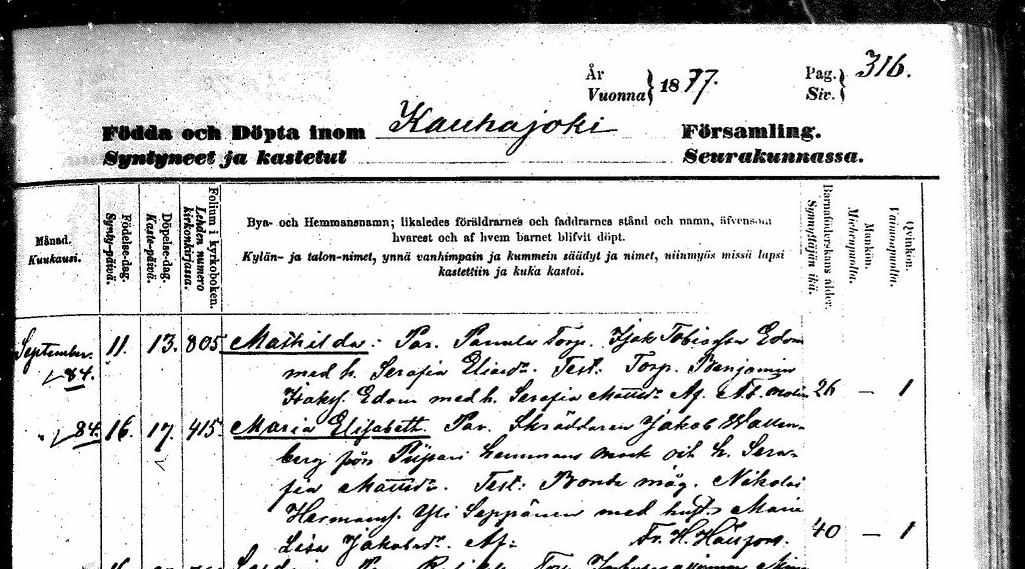 År
Vuonna } 1877.
Pag.
Siv. } 316.
Födda och Döpta inom Kauhajoki Församling.
Syntyneet ja kastetut Seurakunnassa.
Månad.
Kuukausi.
Födelse-dag.
Synty-päivä.
Döpelse-dag.
Kaste-päivä.
Folium i kyrkoboken.
Lehden numero
kirkonkirjassa.
Bya- och Hemmansnamn; likaledes föräldrarnes och faddrarnes stånd och namn, äfvensom
hvarest och af hvem barnet blifvit döpt.
Kylän- ja talon-nimet, ynnä vanhimpain ja kummein säädyt ja nimet, niinmyös missä lapsi
kastettiin ja kuka kastoi.
Barnaföderskans ålder.
Synnyttäjän ikä.
Mankön.
Miehenpuolta.
Qvinkön.
Vaimonpuolta.
September. 11. 13. 805. Mathilda: Par. Torp. Isak Edom
84. med h. Serafia Test. Torp. Benjamin
Isaksf. Edom med h. Serafia Mattsdr. Af 26 — 1
84. 16. 17. 415. Maria Elisabett. Par. Skräddaren Jakob Wallen-
berg från Piipari hemmans och h. Sera-
fia Mattsdr. Test: Bonde Nikolai
Hermansf. Yli Seppänen med hust. Maria
Lisa Jakobsdr. Af: Fr. H. 40 — 1